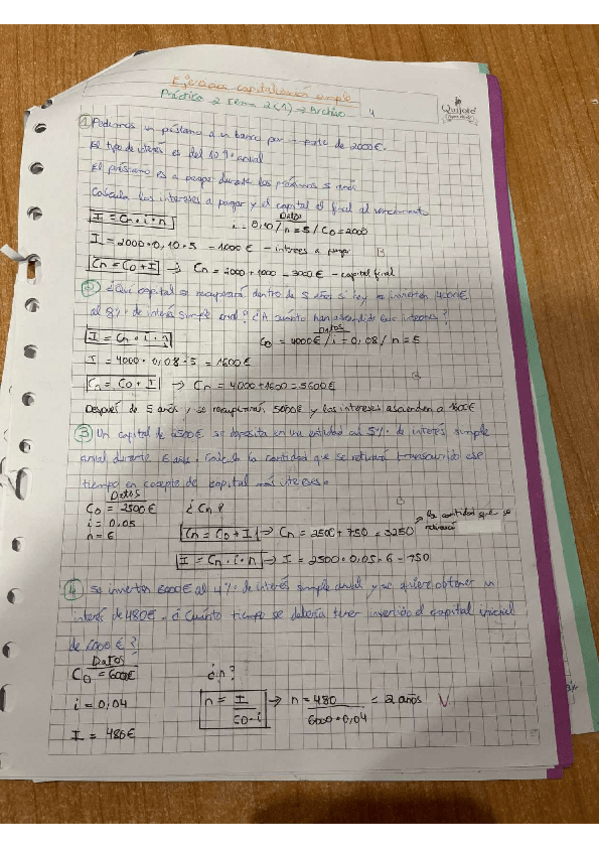 Ejercicios capitalización simple
Práctica 2 tema 2 (1) → Archivo
4
Quijote
① Pedimos un préstamo a un banco por importe de 2000€.
El tipo de interés es del 10% anual
El préstamo es a pagar durante los próximos 5 años
Calcula los intereses a pagar y el capital al final al vencimiento
Datos
I = Cn · i · n
i = 0,10 / n = 5 / C0 = 2000
I = 2000 · 0,10 · 5 = 1000€ - intereses a pagar
B
Cn = C0 + I → Cn = 2000 + 1000 = 3000€ - capital final
② ¿Qué capital se recuperará dentro de 5 años si hoy se invierten 4000€
al 8% de interés simple anual? ¿A cuánto han ascendido los intereses?
Datos
I = Cn · i · n
C0 = 4000€ / i = 0,08 / n = 5
I = 4000 · 0,08 · 5 = 1600€
Cn = C0 + I → Cn = 4000 + 1600 = 5600€
Después de 5 años, se recuperarán 5600€ y los intereses ascienden a 1600€
③ Un capital de 2500€ se deposita en una entidad al 5% de interés simple
anual durante 6 años. Calcula la cantidad que se retirará transcurrido ese
tiempo en concepto de capital más intereses.
Datos
C0 = 2500€
¿Cn?
B
i = 0,05
n = 6
Cn = C0 + I → Cn = 2500 + 750 = 3250
la cantidad que se
retirará
I = Cn · i · n → I = 2500 · 0,05 · 6 = 750
④ Se invierten 6000€ al 4% de interés simple anual y se quiere obtener un
interés de 480€. ¿Cuánto tiempo se debería tener invertido el capital inicial
de 6000€?
Datos
C0 = 6000€
¿n?
i = 0,04
n = I / C0 · i → n = 480 / 6000 · 0,04 = 2 años
I = 480€